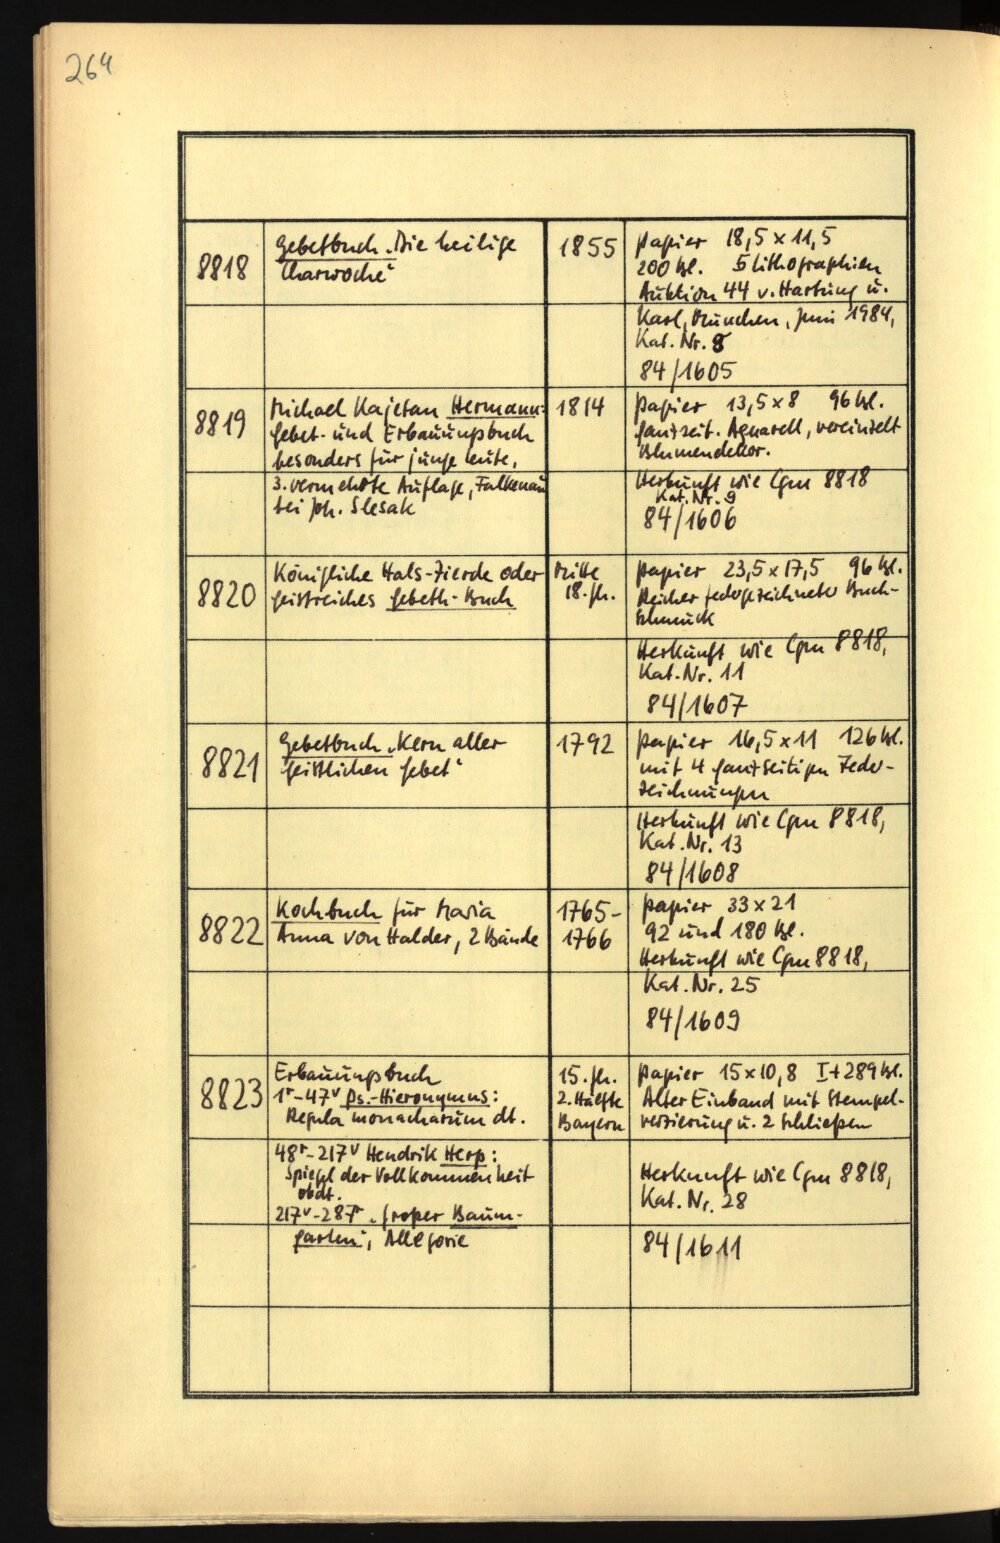 264
8818
Gebetbuch „Die heilige
Charwoche“
1855
Papier 18,5 x 11,5
200 Bl. 5 Lithographien
Auktion 44 v. Hartung u.
Karl, München, Juni 1984,
Kat. Nr. 8
84/1605
8819
Michael Kajetan Hermann:
Gebet- und Erbauungsbuch
besonders für junge Leute,
3. vermehrte Auflage, Falkenau
bei Joh. Slesak
1814
Papier 13,5 x 8 96 Bl.
Ganzseit. Aquarell, vereinzelt
Blumendekor.
Herkunft wie Cgm 8818
Kat. Nr. 9
84/1606
8820
Königliche Hals-Zierde oder
geistreiches Gebeth-Buch
Mitte
18. Jh.
Papier 23,5 x 17,5 96 Bl.
Reicher federgezeichneter Buch-
schmuck
Herkunft wie Cgm 8818,
Kat. Nr. 11
84/1607
8821
Gebetbuch „Kern aller
geistlichen Gebet“
1792
Papier 16,5 x 11 126 Bl.
mit 4 ganzseitigen Feder-
zeichnungen
Herkunft wie Cgm 8818,
Kat. Nr. 13
84/1608
8822
Kochbuch für Maria
Anna von Halder, 2 Bände
1765-
1766
Papier 33 x 21
92 und 180 Bl.
Herkunft wie Cgm 8818,
Kat. Nr. 25
84/1609
8823
Erbauungsbuch
1r-47v Ps.-Hieronymus:
Regula monacharum dt.
48r-217v Hendrik Herp:
Spiegel der Vollkommenheit
obdt.
217v-287r „Großer Baum-
garten“, Allegorie
15. Jh.
2. Hälfte
Bayern
Papier 15 x 10,8 I+289 Bl.
Alter Einband mit Stempel-
verzierung u. 2 Schließen
Herkunft wie Cgm 8818,
Kat. Nr. 28
84/1611